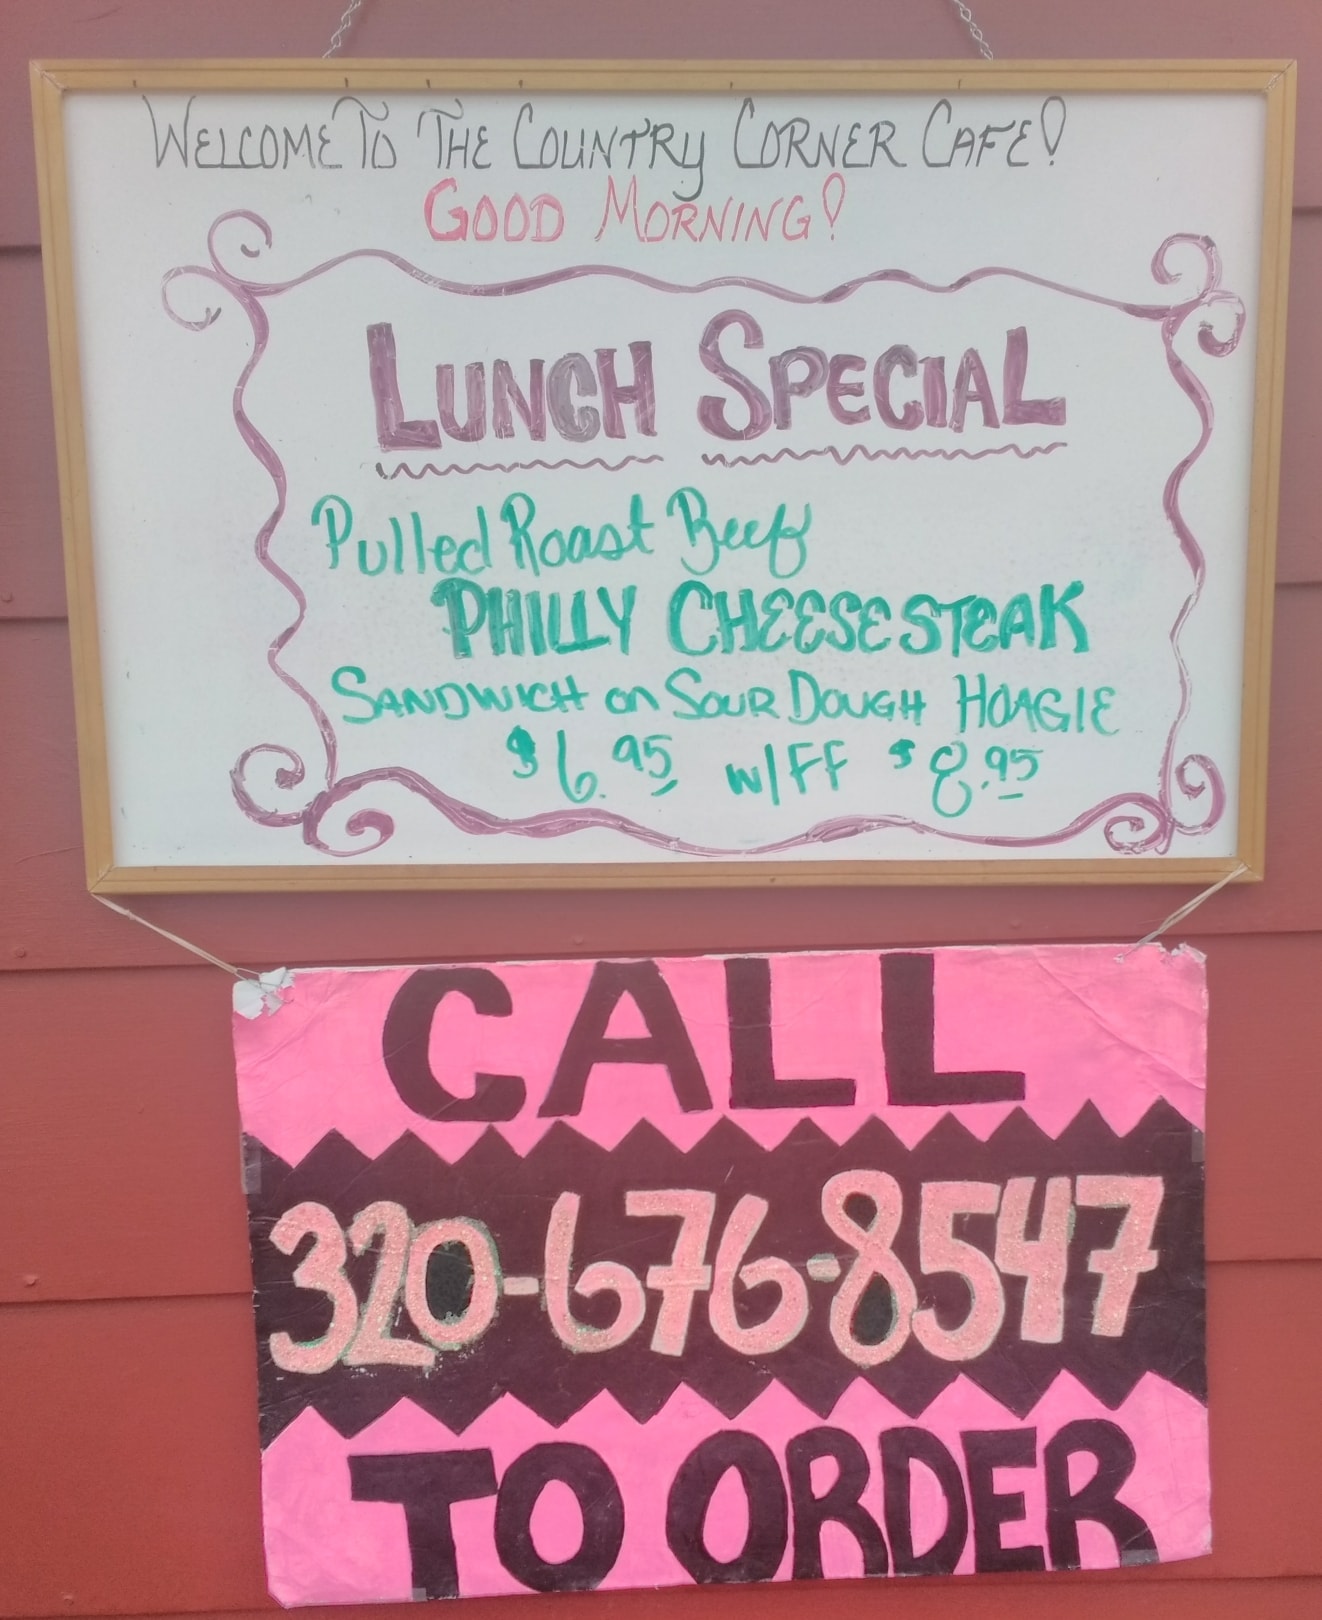 WELCOME TO THE COUNTRY CORNER CAFE!
GOOD MORNING!
LUNCH SPECIAL
Pulled Roast Beef
PHILLY CHEESESTEAK
SANDWICH on SOUR DOUGH HOAGIE
$6.95 w/FF $8.95
CALL
320-676-8547
TO ORDER